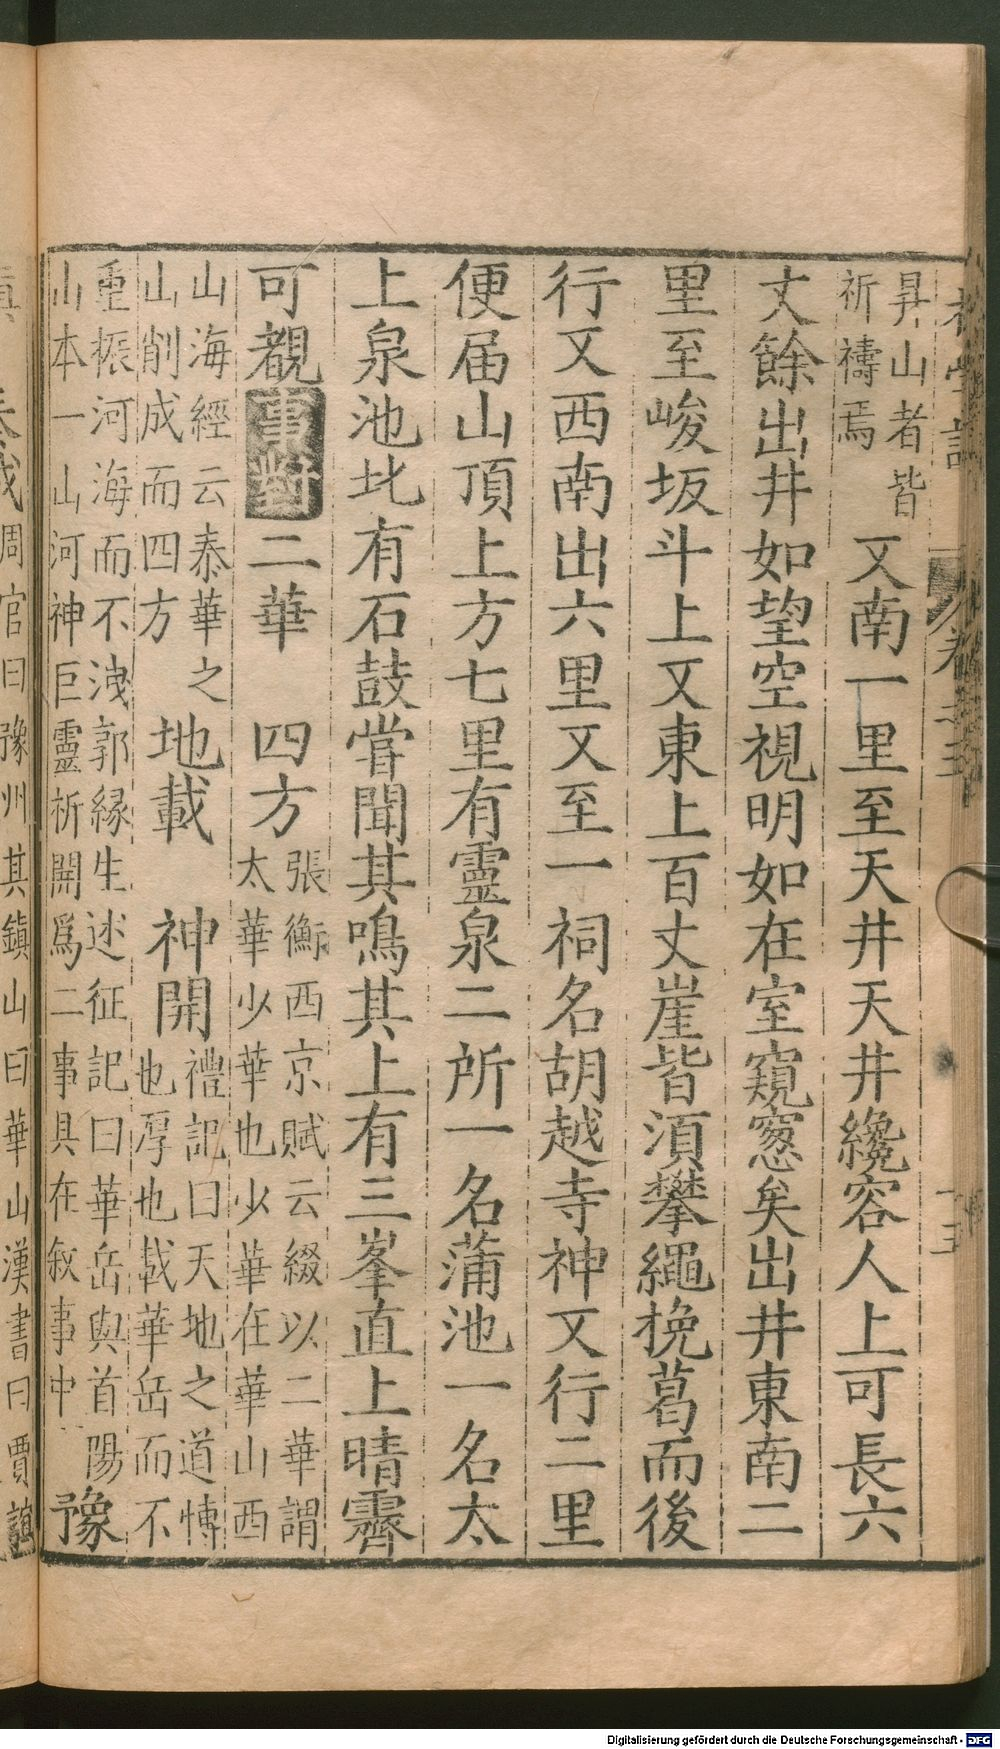 昇山者皆
祈禱焉
又南一里至天井天井纔容人上可長六
丈餘出井如望空視明如在室窺窻矣出井東南二
里至峻坂斗上又東上百丈崖皆湏攀繩挽葛而後
行又西南出六里又至一祠名胡越寺神又行二里
便届山頂上方七里有靈泉二所一名蒲池一名太
上泉池北有石鼓嘗聞其鳴其上有三峯直上晴霽
可覩事對二華 四方
張衡西京賦云綴以二華謂
太華少華也少華在華山西
山海經云泰華之
山削成而四方
地載 神開
禮記曰天地之道愽
也厚也載華岳而不
重振河海而不洩郭緣生述征記曰華岳與首陽
山本一山河神巨靈析開爲二事具在敘事中
豫
周官曰豫州其鎮山曰華山漢書曰賈誼
Digitalisierung gefördert durch die Deutsche Forschungsgemeinschaft - DFG